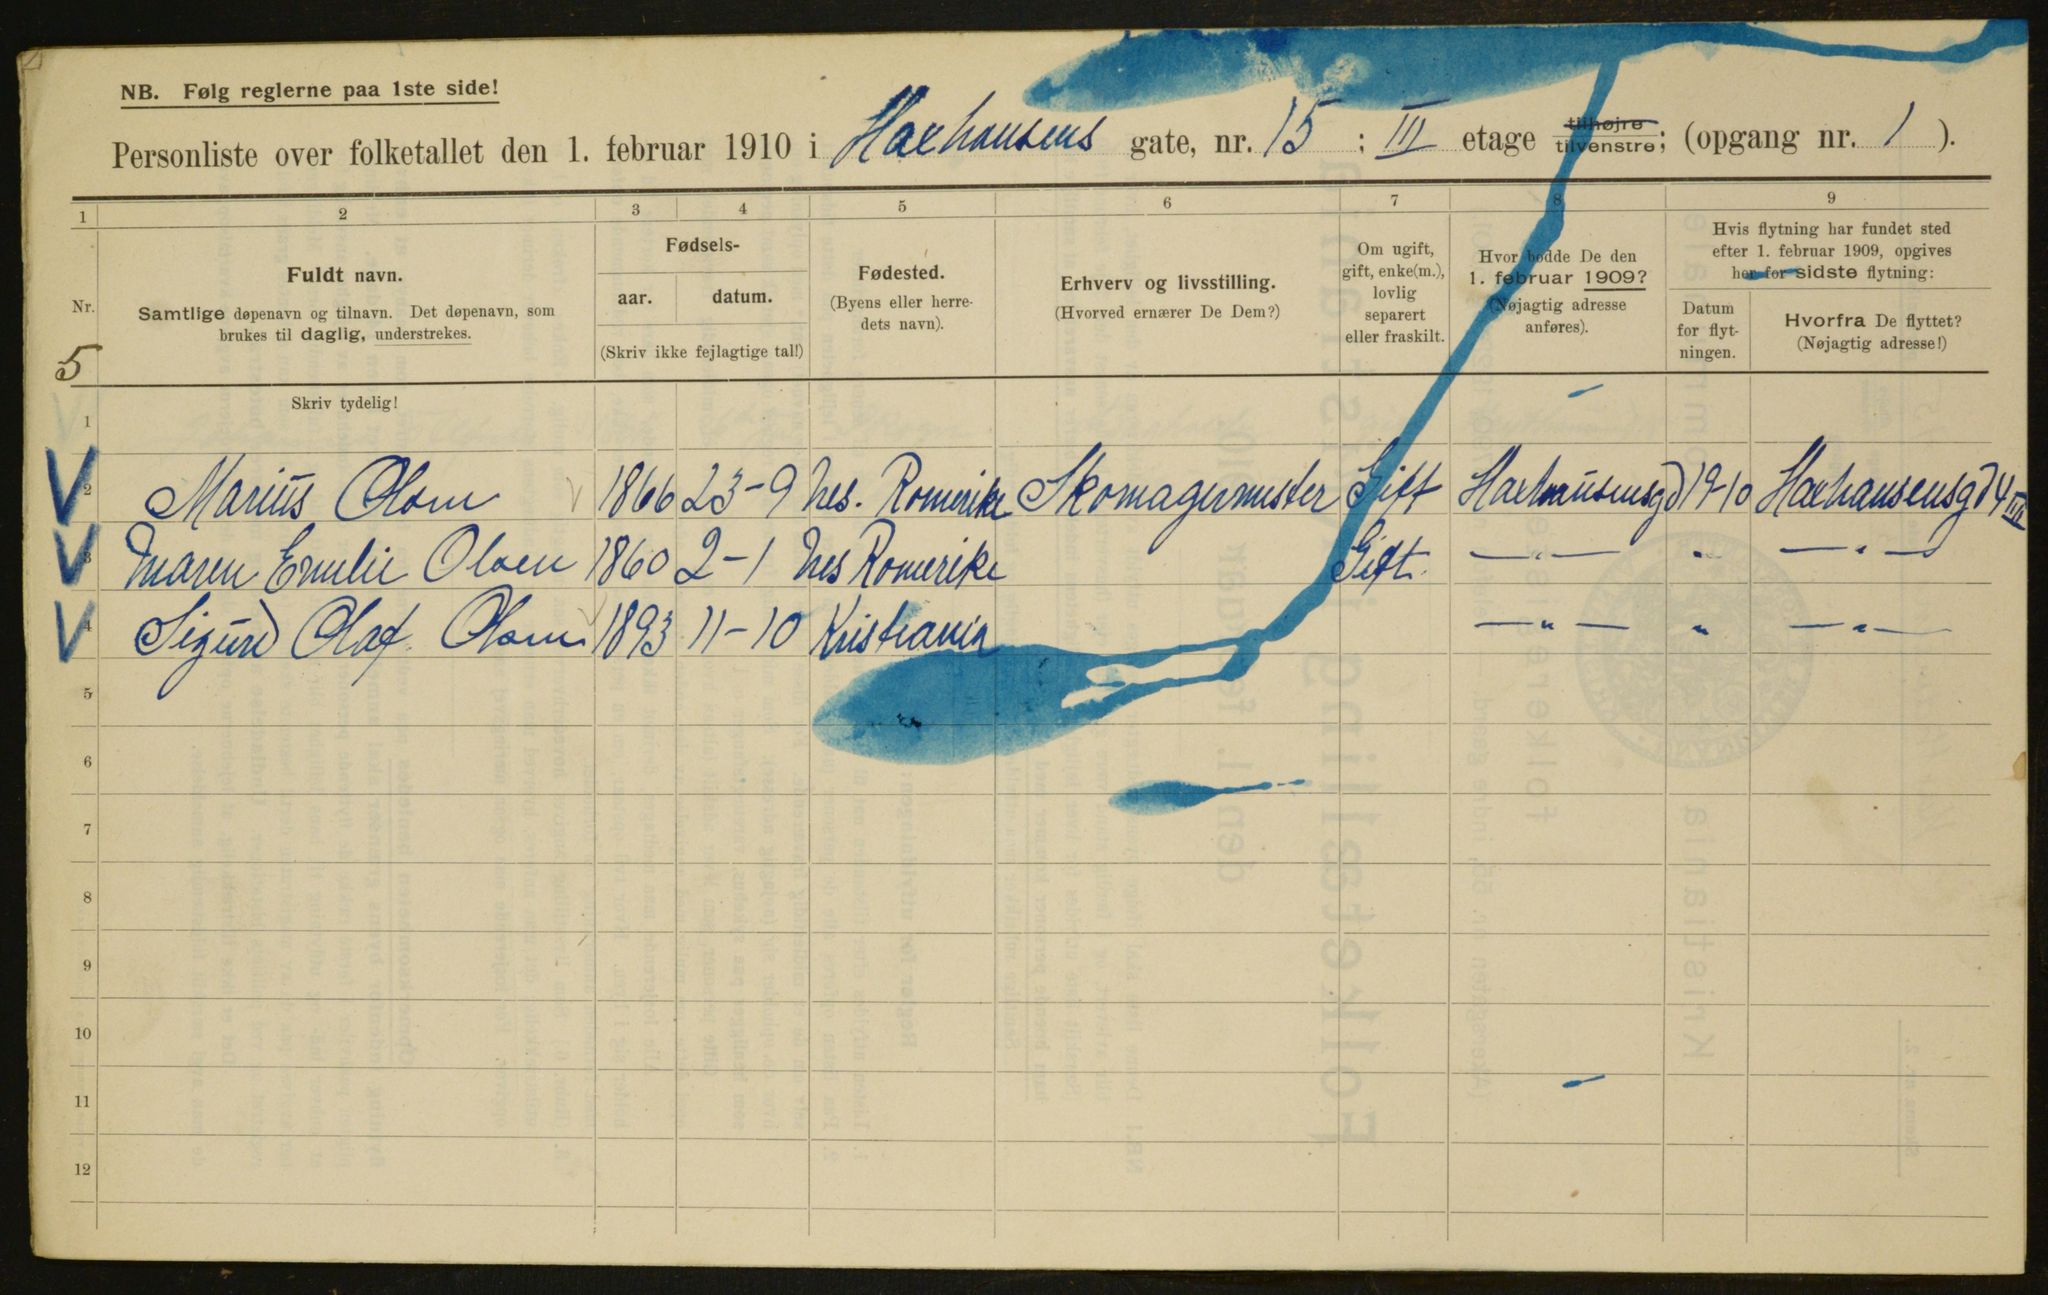 NB. Følg reglerne paa 1ste side!
Personliste over folketallet den 1. februar 1910 i Haxhausens gate, nr. 15 : III etage tilhøjre tilvenstre; (opgang nr. 1 ).
1 2 3 4 5 6 7 8 9
Nr.
Fuldt navn.
Samtlige døpenavn og tilnavn. Det døpenavn, som
brukes til daglig, understrekes.
Fødsels-
aar. datum.
(Skriv ikke fejlagtige tal!)
Fødested.
(Byens eller herre-
dets navn).
Erhverv og livsstilling.
(Hvorved ernærer De Dem?)
Om ugift,
gift, enke(m.),
lovlig
separert
eller fraskilt.
Hvor bodde De den
1. februar 1909?
(Nøjagtig adresse
anføres).
Hvis flytning har fundet sted
efter 1. februar 1909, opgives
her før sidste flytning:
Datum
for flyt-
ningen.
Hvorfra De flyttet?
(Nøjagtig adresse!)
5
Skriv tydelig!
1
2 Marius Olsen 1866 23-9 Nes. Romerike Skomagermester Gift Haxhausensgd 19-10 Haxhausensgd 4 III
3 Maren Emilie Olsen 1860 2-1 Nes Romerike Gift — " — " — " —
4 Sigurd Olaf. Olsen 1893 11-10 Kristiania — " — " — " —
5
6
7
8
9
10
11
12